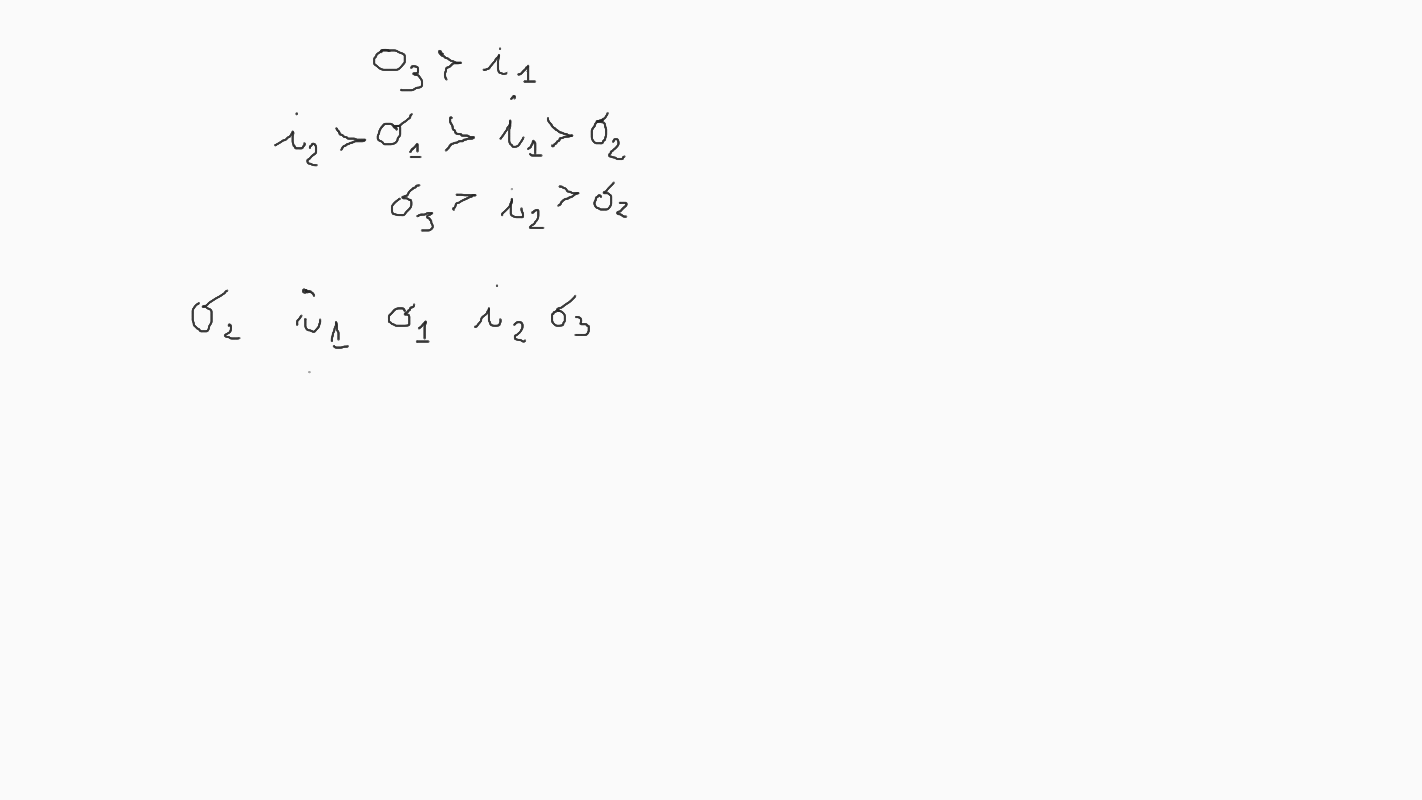 σ₃ > i₁
i₂ > σ₁ > i₁ > σ₂
σ₃ > i₂ > σ₂
σ₂ i₁ σ₁ i₂ σ₃